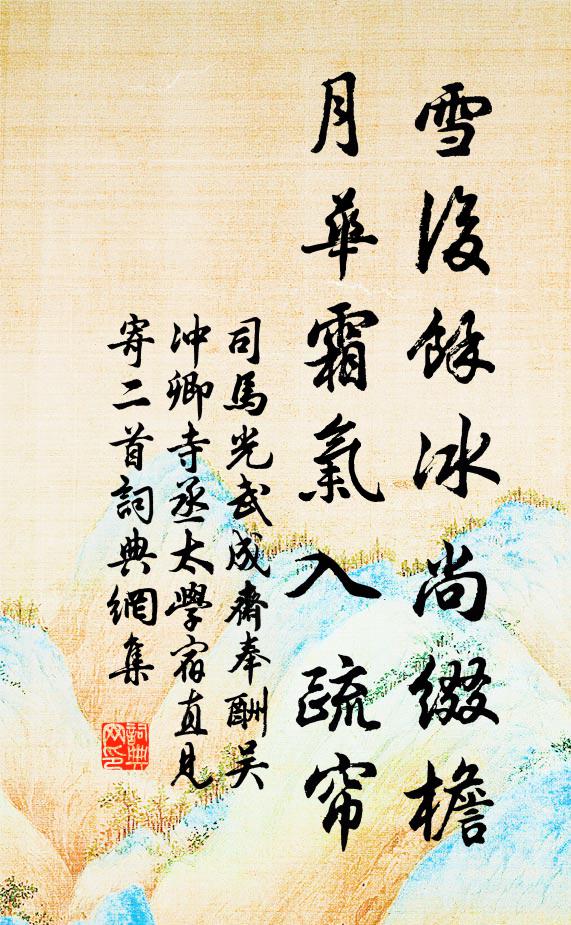 雪後餘冰尚綴檐
月華霜氣入疏帘
司馬光武成齋奉酬吴
冲卿寺丞太學宿直見
寄二首詞典網集
詞典
网印